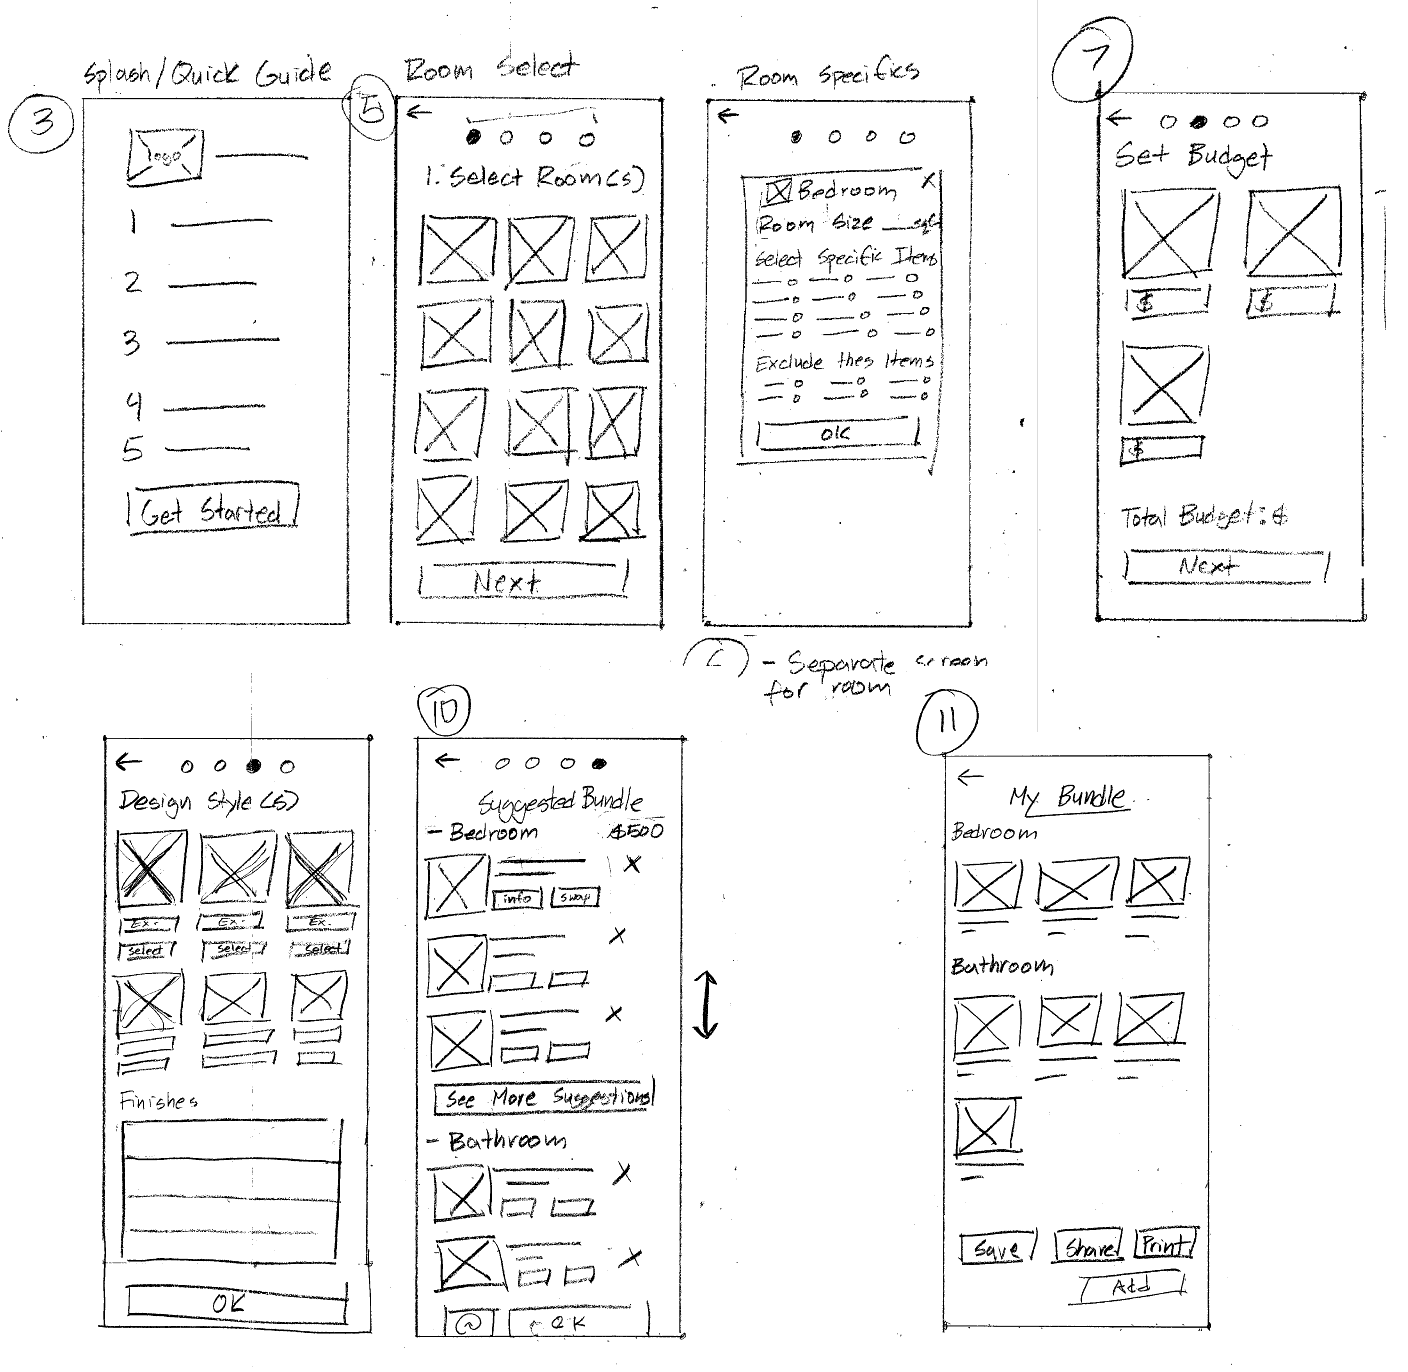 Splash/Quick Guide
3
logo
1
2
3
4
5
Get Started
Room Select
5
1. Select Room(s)
Next
Room Specifics
Bedroom X
Room Size
Select Specific Items
Exclude thes Items
OK
- Separate screen
for room
7
Set Budget
$ $
$
Total Budget: $
Next
Design Style(s)
Ex: Ex: Ex.
Select Select Select
Finishes
OK
10
Suggested Bundle
- Bedroom $500
X
info swap
X
X
See More Suggestions
- Bathroom
X
X
OK
11
My Bundle
Bedroom
Bathroom
Save Share Print
Add